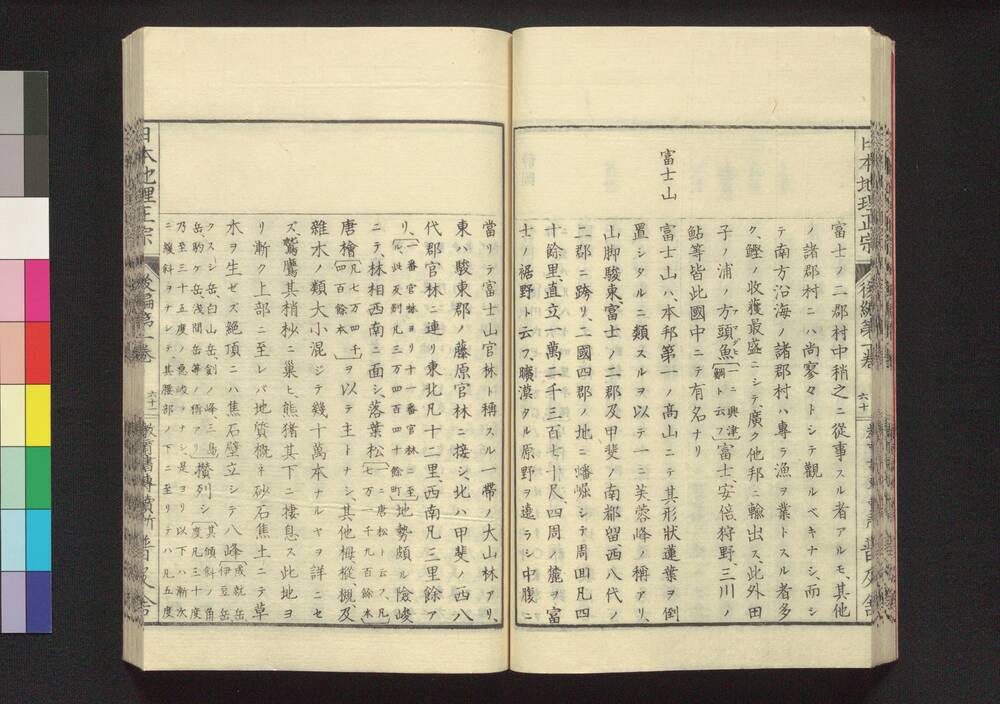 日本地理正宗 後編第一卷 六十一 普及舍
富士ノ二郡村中稍之ニ從事スル者アルモ、其他
ノ諸郡村ニハ尚寥々トシテ觀ルベキナシ、而シ
テ南方沿海ノ諸郡村ハ專ラ漁ヲ業トスル者多
ク、鰹ノ收獲最盛ニシテ、廣ク他邦ニ輸出ス、此外田
子ノ浦ノ方頭魚(一ニ興津鯛ト云フ)富士、安倍狩野、三川ノ
アマダヒ
鮎等皆此國中ニテ有名ナリ
富士山
富士山ハ、本邦第一ノ高山ニテ其形狀蓮葉ヲ倒
置シタルニ類スルヲ以テ一ニ芙蓉峰ノ稱アリ、
山脚駿東、富士ノ二郡及甲斐ノ南都留西八代ノ
二郡ニ跨リ、二國四郡ノ地ニ蟠崛シテ周回凡四
十餘里、直立一萬二千三百七十尺、四周ノ麓ヲ富
士ノ裾野ト云フ、曠漠タル原野ヲ遶ラシ中腹ニ
當リテ富士山官林ト稱スル一帶ノ大山林アリ、
東ハ駿東郡ノ藤原官林ニ接シ、北ハ甲斐ノ西八
代郡官林ニ連リ東北凡十二里、西南凡三里餘ア
リ、(一番官林ヨリ十一番官林ニ至ル、此反別凡三万四百四十餘町)地勢頗ル險峻
ニテ、林相西南ニ面シ、落葉松(一ニ唐松ト云フ、凡七万一千九百餘本)
唐檜(凡七万四千四百餘本)ヲ以テ主トナシ、其他栂樅、槻、及
雜木ノ類大小混ジテ幾十萬本ナルヤヲ詳ニセ
ズ、鷲鷹其梢杪ニ巢ヒ、熊猪其下ニ棲息ス此地ヨ
リ漸ク上部ニ至レバ地質概ネ砂石焦土ニテ草
木ヲ生ゼズ絕頂ニハ焦石壁立シテ八峰(成就岳伊豆岳
クスシ岳、白山岳、劍ノ峰、三島岳、駒ケ岳淺間岳等ノ偁アリ)攅列シ(其傾斜ノ角度凡三十度
乃至三十五度ノ急峻ヲナシ是ヨリ以下ハ漸次
ニ緩斜ヲナシテ、其腰部ノ下ニ至リテハ凡五度
日本地理正宗 後編第一卷 六十二 教育書專賣所 普及舍